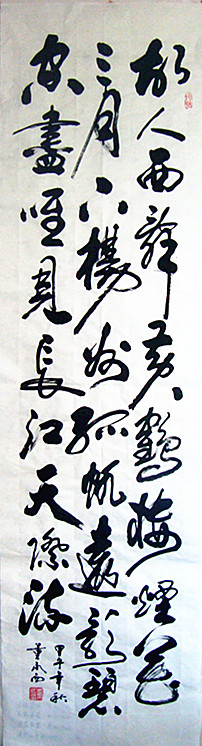 故人西辭黃鶴樓煙花
三月下揚州孤帆遠影碧
空盡唯見長江天際流
甲午年秋